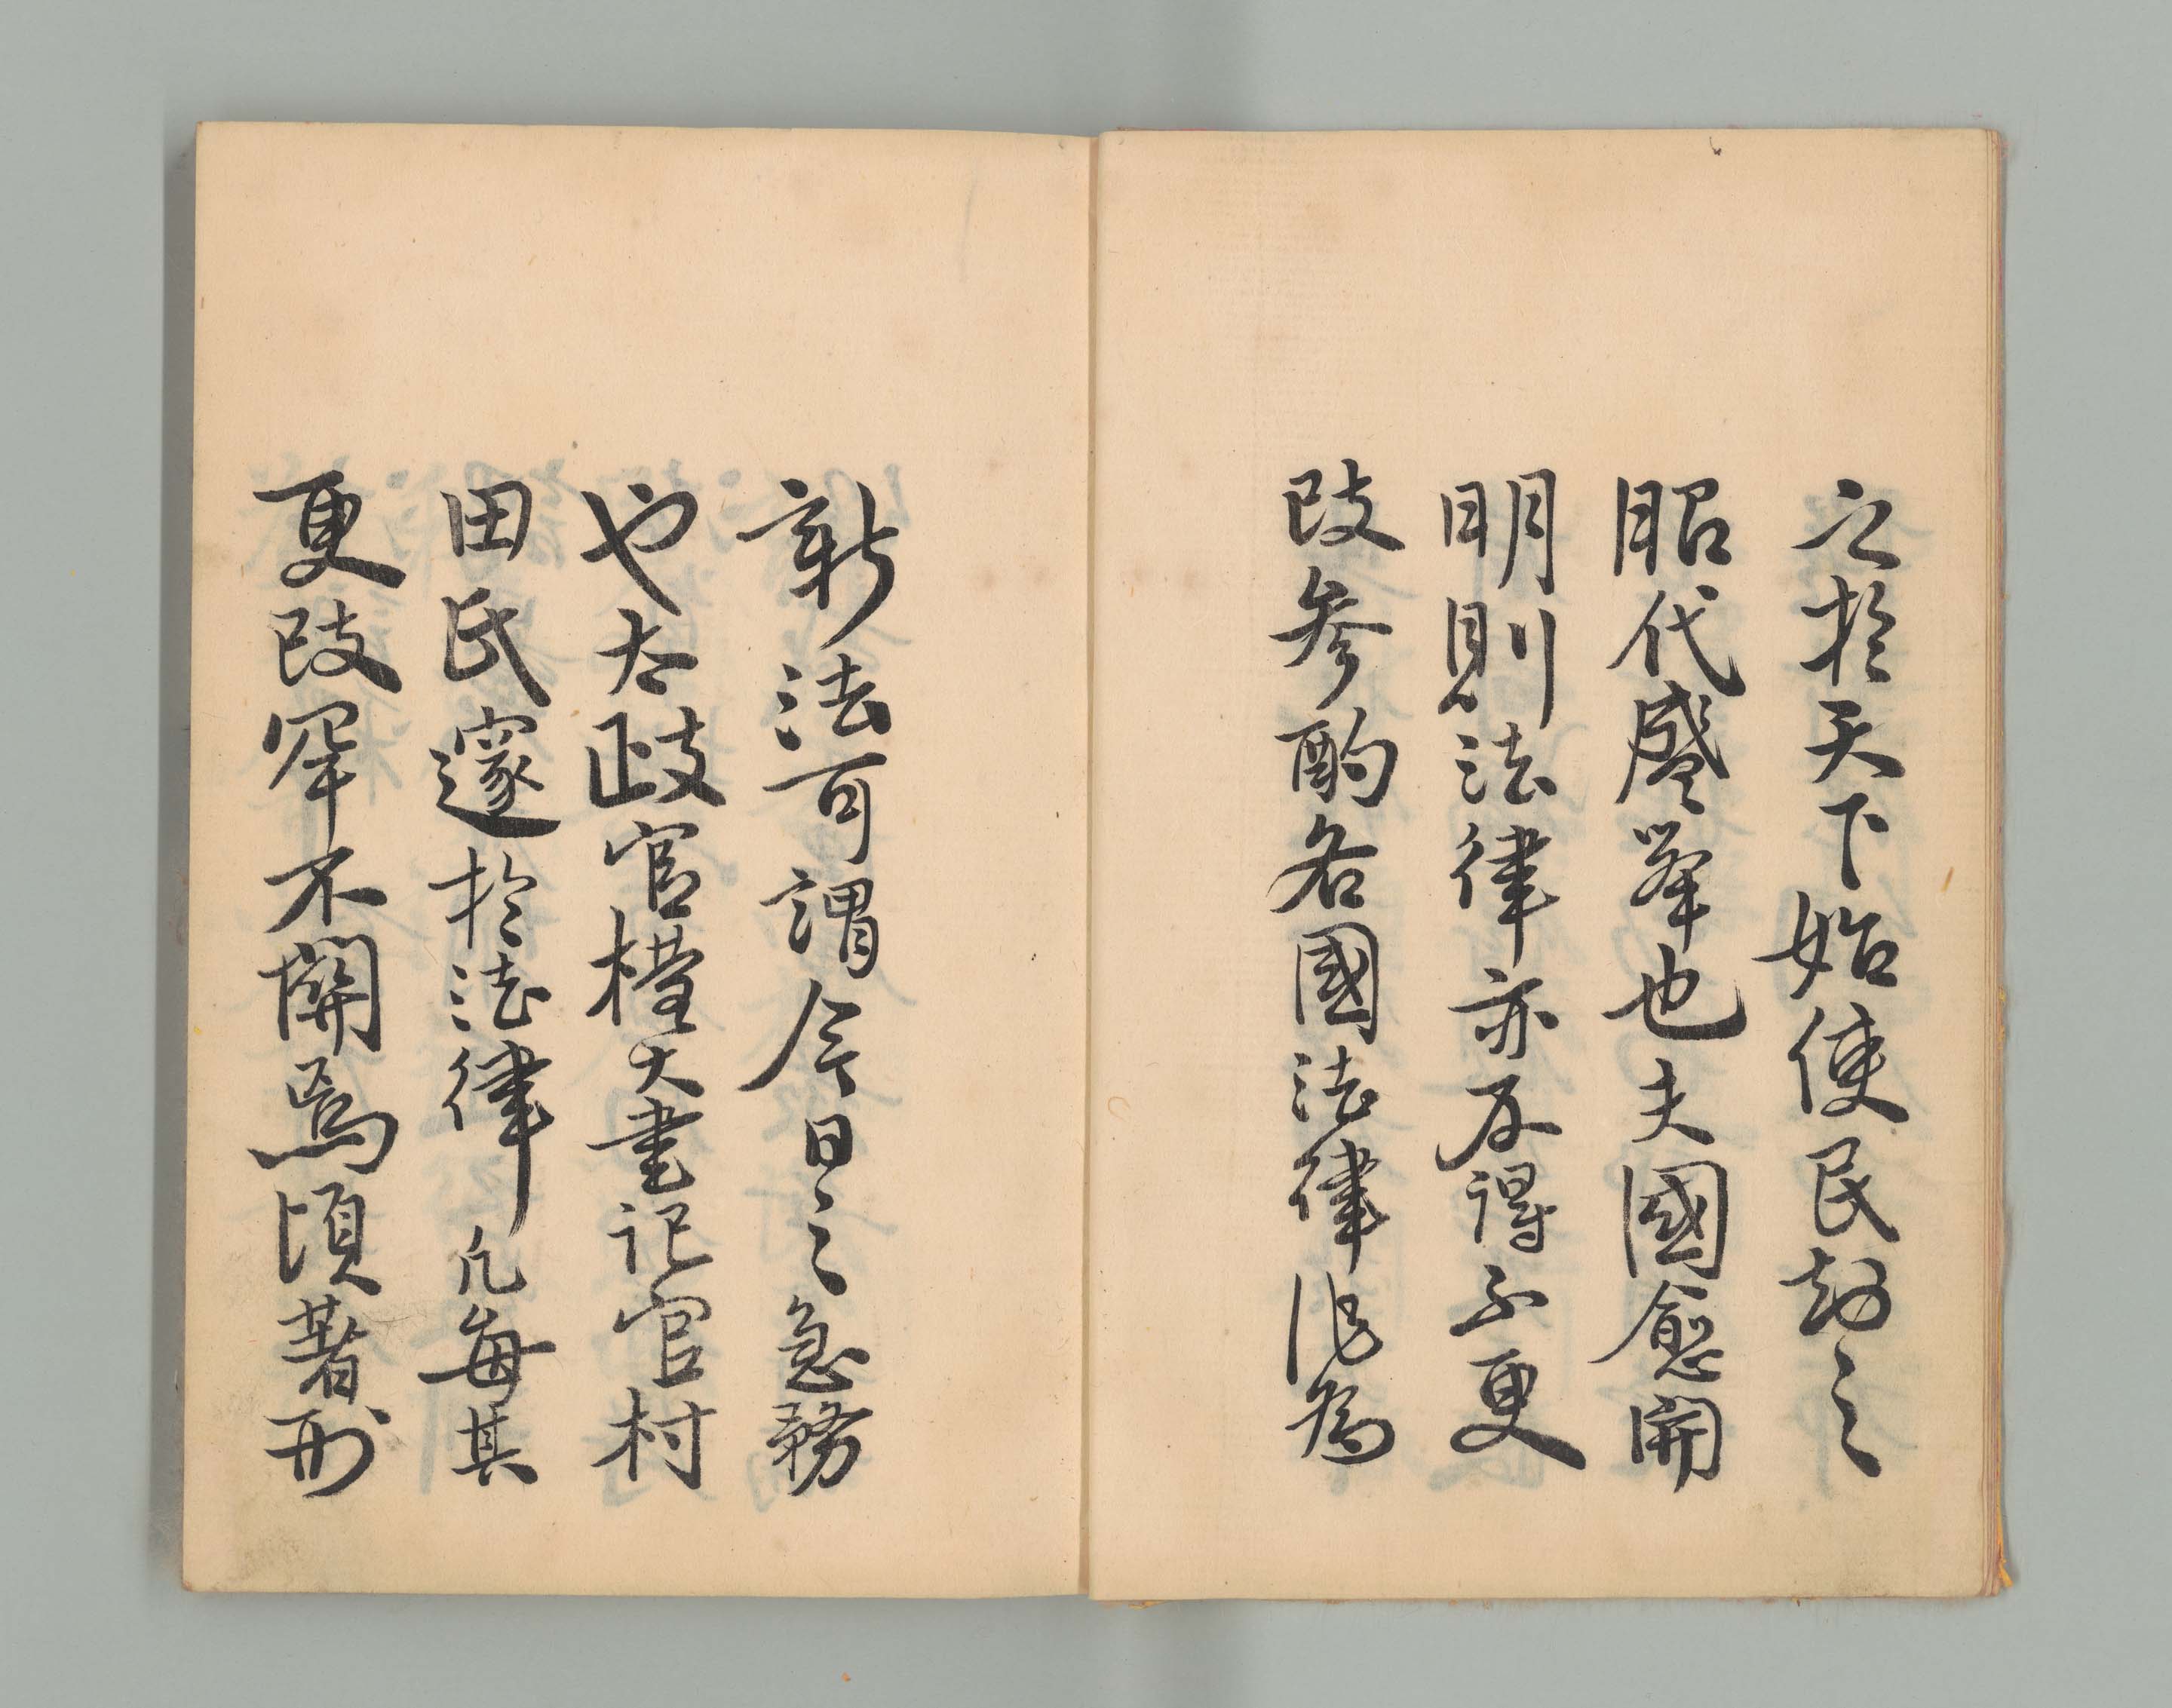 之於天下始使民知之
昭代盛挙也夫國愈開
明則法律亦不得不更
改参酌各國法律作為
新法可謂今日之急務
也太政官權大書記官村
田氏邃於法律凡每其
更改罕不關焉頃著刑